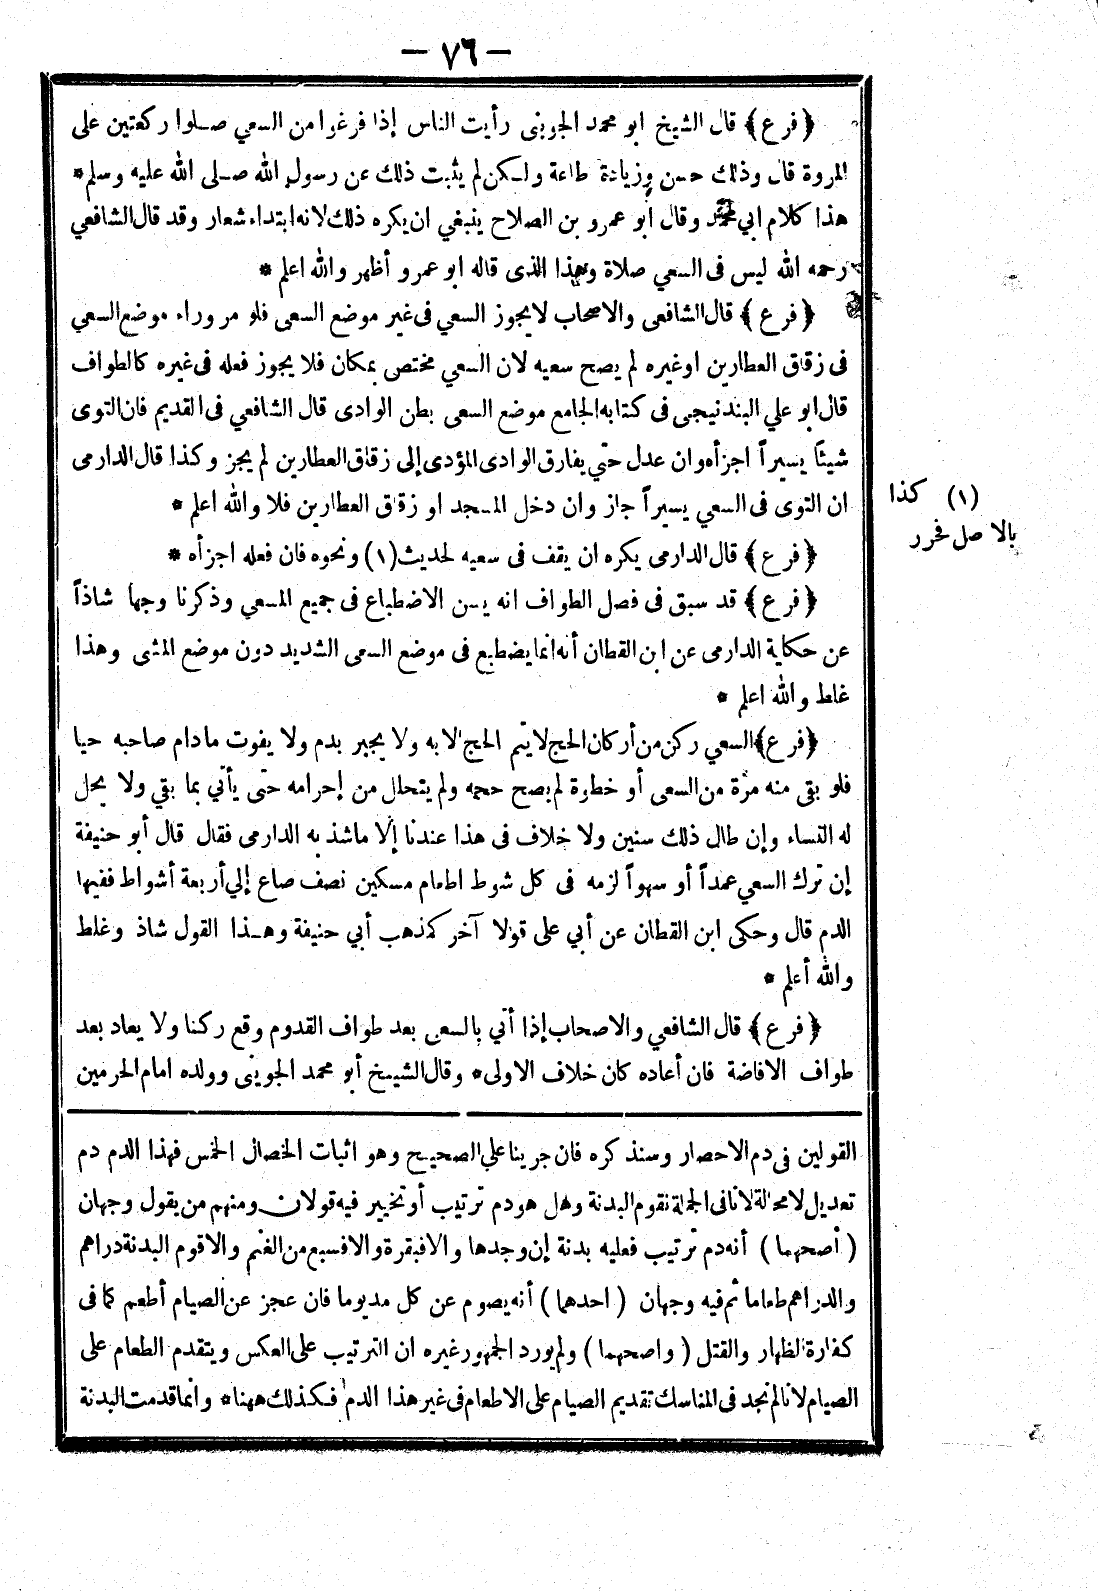 — ٧٦ —
﴿ فرع ﴾ قال الشيخ ابو محمد الجوينى رأيت الناس إذا فرغوا من السعي صلوا ركعتين على
المروة قال وذلك حسن وزيادة طاعة ولكن لم يثبت ذلك عن رسول الله صلى الله عليه وسلم *
هذا كلام ابي محمد وقال أبو عمرو بن الصلاح ينبغي ان يكره ذلك لانه ابتداء شعار وقد قال الشافعي
رحمه الله ليس فى السعي صلاة وهذا الذى قاله ابو عمرو أظهر والله اعلم *
﴿ فرع ﴾ قال الشافعى والاصحاب لايجوز السعي فى غير موضع السعى فلو مر وراء موضع السعي
فى زقاق العطارين اوغيره لم يصح سعيه لان السعي مختص بمكان فلا يجوز فعله فى غيره كالطواف
قال ابو علي البندنيجى فى كتابه الجامع موضع السعى بطن الوادى قال الشافعي فى القديم فان التوى
شيئاً يسيراً اجزأه وان عدل حتي يفارق الوادى المؤدى إلى زقاق العطارين لم يجز وكذا قال الدارمى
ان التوى فى السعي يسيراً جاز وان دخل المسجد او زقاق العطارين فلا والله اعلم *
(١) كذا
بالاصل فحرر
﴿ فرع ﴾ قال الدارمى يكره ان يقف فى سعيه لحديث (١) ونحوه فان فعله اجزأه *
﴿ فرع ﴾ قد سبق فى فصل الطواف انه يسن الاضطباع فى جميع المسعي وذكرنا وجها شاذاً
عن حكاية الدارمى عن ابن القطان أنه انما يضطبع فى موضع السعى الشديد دون موضع المشى وهذا
غلط والله اعلم *
﴿ فرع ﴾ السعي ركن من أركان الحج لايتم الحج الا به ولا يجبر بدم ولا يفوت مادام صاحبه حيا
فلو بقى منه مرة من السعى أو خطوة لم يصح حجه ولم يتحلل من إحرامه حتى يأتي بما بقي ولا يحل
له النساء وإن طال ذلك سنين ولا خلاف فى هذا عندنا إلا ماشذ به الدارمى فقال قال أبو حنيفة
إن ترك السعي عمداً أو سهواً لزمه فى كل شوط اطعام مسكين نصف صاع إلي أربعة أشواط ففيها
الدم قال وحكى ابن القطان عن أبي على قولا آخر كمذهب أبي حنيفة وهذا القول شاذ وغلط
والله أعلم *
﴿ فرع ﴾ قال الشافعي والاصحاب إذا أتي بالسعى بعد طواف القدوم وقع ركنا ولا يعاد بعد
طواف الافاضة فان أعاده كان خلاف الاولى * وقال الشيخ أبو محمد الجوينى وولده امام الحرمين
القولين فى دم الاحصار وسنذكره فان جرينا علي الصحيح وهو اثبات الخصال الخمس فهذا الدم دم
تعديل لامحالة لانا فى الجملة نقوم البدنة وهل هو دم ترتيب أو تخيير فيه قولان ومنهم من يقول وجهان
( أصحهما ) أنه دم ترتيب فعليه بدنة إن وجدها والافبقرة والافسبع من الغنم والاقوم البدنة دراهم
والدراهم طعاما ثم فيه وجهان ( احدهما ) أنه يصوم عن كل مد يوما فان عجز عن الصيام أطعم كما فى
كفارة الظهار والقتل ( واصحهما ) ولم يورد الجمهور غيره ان الترتيب على العكس ويتقدم الطعام على
الصيام لانا لم نجد فى المناسك تقديم الصيام على الاطعام فى غير هذا الدم فكذلك ههنا * وانما قدمت البدنة